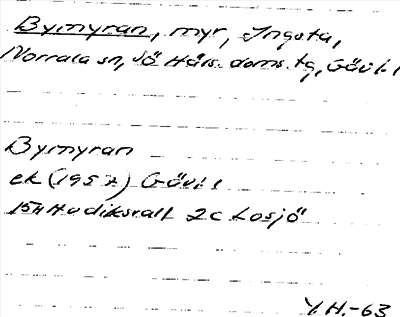 Bymyran, myr, Ingsta,
Norrala sn, Sö Häls. doms. tg, Gävl. l
Bymyran
ek (1957) Gävl. l
15H Hudiksvall 2c Losjö
Y.H.-63